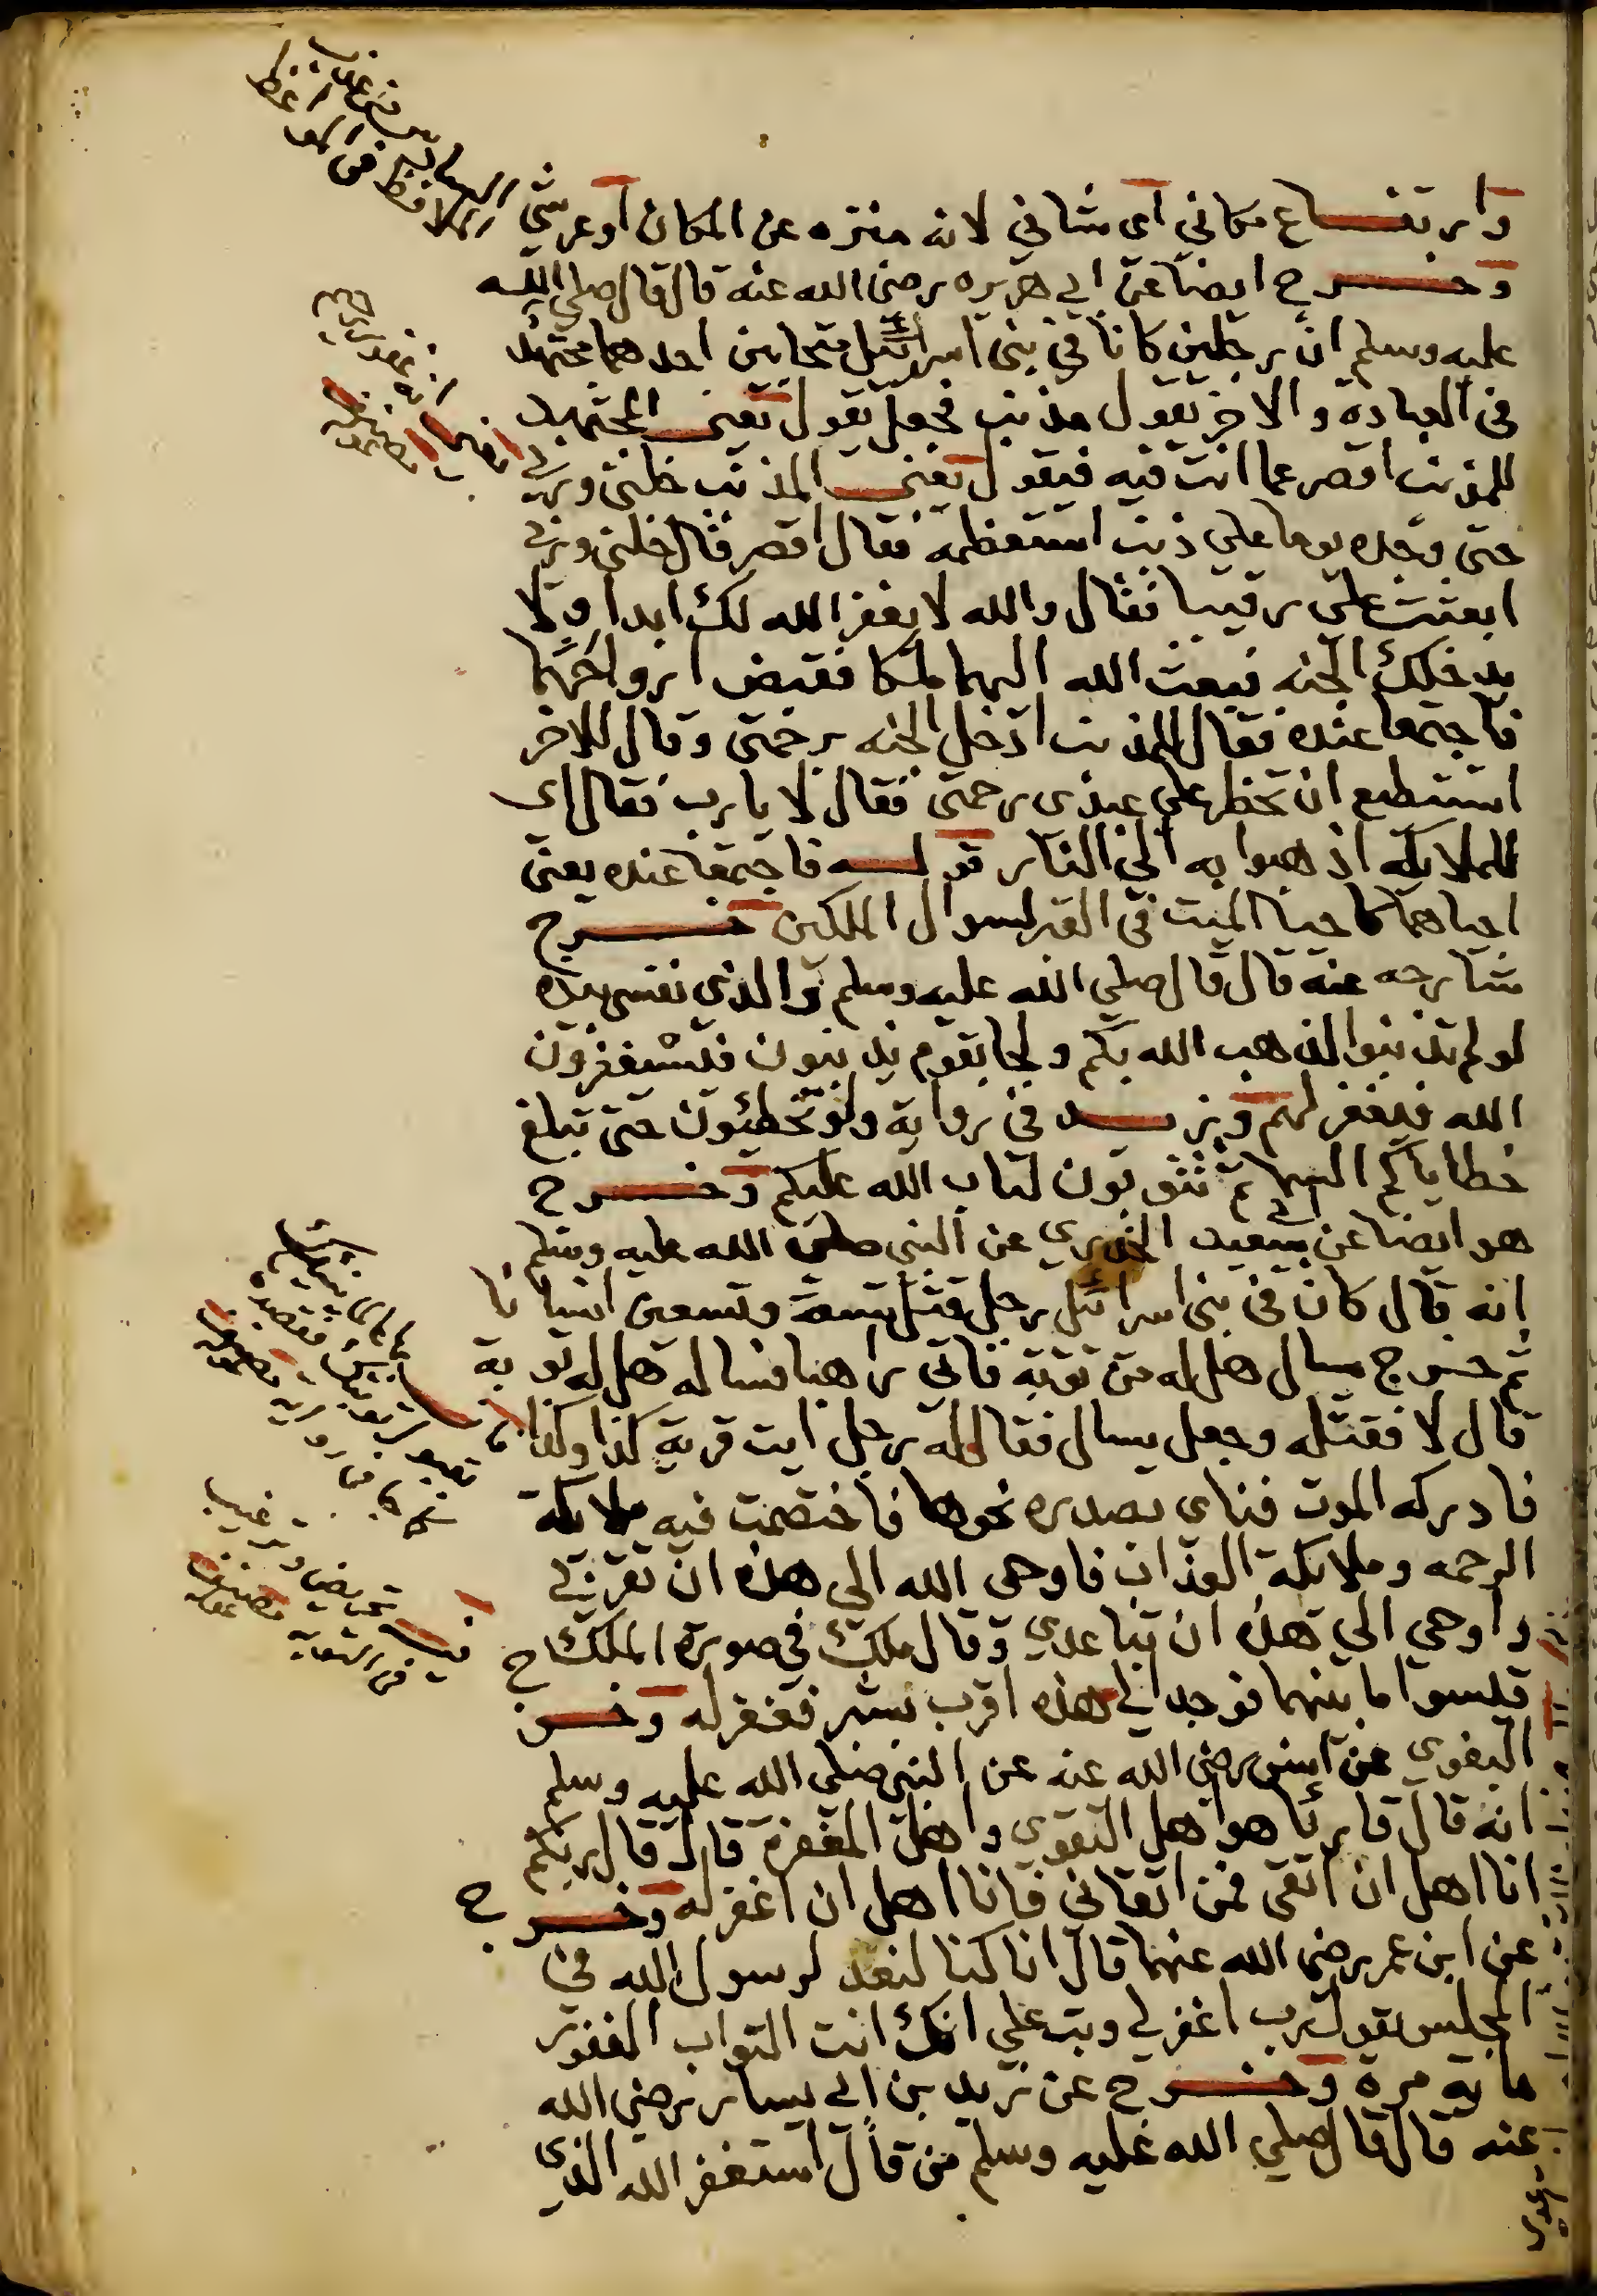 وارتفاع مكاني اى شانى لانه منزه عن المكان او عرشي
وخرج ايضا عن ابي هريره رضى الله عنه قال قال صلى الله
عليه وسلم ان رجلين كانا في بنى اسرائيل متحابين احدهما مجتهد
فى العبادة والاخر يقول مذنب فجعل يقول يعنى المجتهد
للمذنب اقصر عما انت فيه فيقول يعنى المذنب خلنى وربي
حتى وجده يوما على ذنب استعظمه فقال اقصر قال خلنى وربي
ابعثت على رقيبا فقال والله لا يغفر الله لك ابدا ولا
يدخلك الجنه فبعث الله اليهما ملكا فقبض ارواحهما
فاجتمعا عنده فقال للمذنب ادخل الجنه برحمتى وقال للاخر
استطيع ان تحظر على عبدى رحمتى فقال لا يا رب فقال اى
للملايكه اذهبوا به الى النار قوله فاجتمعا عنده يعنى
احياهما كاحيا الميت فى القبر لسوال الملكين خرج
شارحه عنه قال قال صلى الله عليه وسلم والذي نفسى بيده
لو لم تذنبوا لذهب الله بكم ولجا بقوم يذنبون فيستغفرون
الله فيغفر لهم وزيد فى رواية ولو تخطئون حتى تبلغ
خطاياكم السما ثم تتوبون لتاب الله عليكم وخرج
هو ايضا عن ابي سعيد الخدري عن النبى صلى الله عليه وسلم
انه قال كان فى بنى اسرائيل رجل قتل تسعة وتسعين انسانا
ثم خرج يسال هل له من توبة فاتى راهبا فساله هل له توبة
قال لا فقتله وجعل يسال فقال له رجل ايت قرية كذا وكذا
فادركه الموت فناى بصدره نحوها فاختصمت فيه ملايكة
الرحمه وملايكة العذاب فاوحى الله الى هذه ان تقربي
واوحى الى هذه ان تباعدي وقال ملك في صورة الملك
قيسوا ما بينهما فوجد الى هذه اقرب بشبر فغفر له وخرج
البغوي عن انس رضى الله عنه عن النبى صلى الله عليه وسلم
انه قال قارئا هو اهل التقوى واهل المغفرة قال قال ربكم
انا اهل ان اتقى فمن اتقانى فانا اهل ان اغفر له وخرج
عن ابن عمر رضى الله عنهما قال انا كنا لنعد لرسول الله فى
المجلس يقول رب اغفر لي وتب على انك انت التواب الغفور
ماية مرة وخرج عن زيد بن ابي يسار رضى الله
عنه قال قال صلى الله عليه وسلم من قال استغفر الله الذى